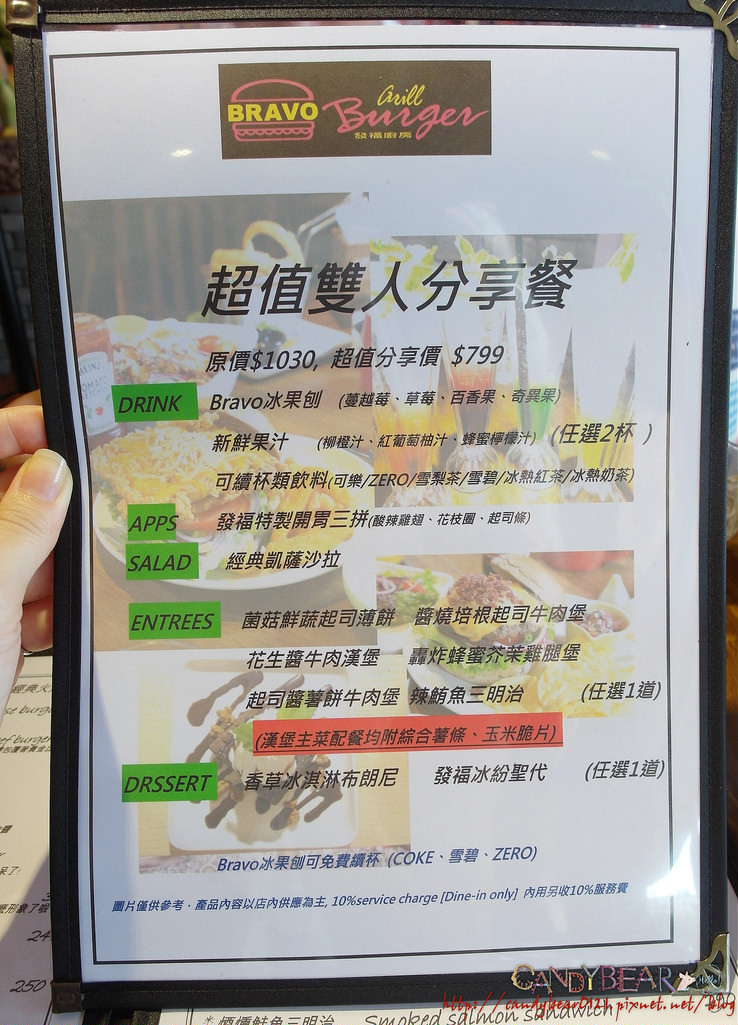 BRAVO
Grill
Burger
發福廚房
超值雙人分享餐
原價$1030, 超值分享價 $799
DRINK Bravo冰果刨 (蔓越莓、草莓、百香果、奇異果)
新鮮果汁 (柳橙汁、紅葡萄柚汁、蜂蜜檸檬汁) (任選2杯 )
可續杯類飲料(可樂/ZERO/雪梨茶/雪碧/冰熱紅茶/冰熱奶茶)
APPS 發福特製開胃三拼(酸辣雞翅、花枝圈、起司條)
SALAD 經典凱薩沙拉
ENTREES 菌菇鮮蔬起司薄餅 醬燒培根起司牛肉堡
花生醬牛肉漢堡 轟炸蜂蜜芥茉雞腿堡
起司醬薯餅牛肉堡 辣鮪魚三明治 (任選1道)
(漢堡主菜配餐均附綜合薯條、玉米脆片)
DRSSERT 香草冰淇淋布朗尼 發福冰紛聖代 (任選1道)
Bravo冰果刨可免費續杯 (COKE、雪碧、ZERO)
圖片僅供參考，產品內容以店內供應為主, 10%service charge [Dine-in only] 內用另收10%服務費
HEINZ
TOMATO
經典火
se burge
ef burger
24
250
CANDYBEAR
http://candybear0121.pixnet.net/blog
*煙燻鮭魚三明治 Smoked salmon sandwich